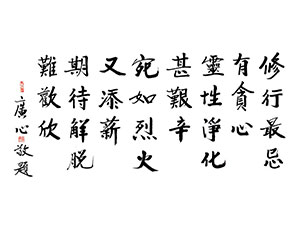 修行最忌
有貪心
靈性淨化
甚艱辛
宛如烈火
又添薪
期待解脫
難歡欣
廣心敬題